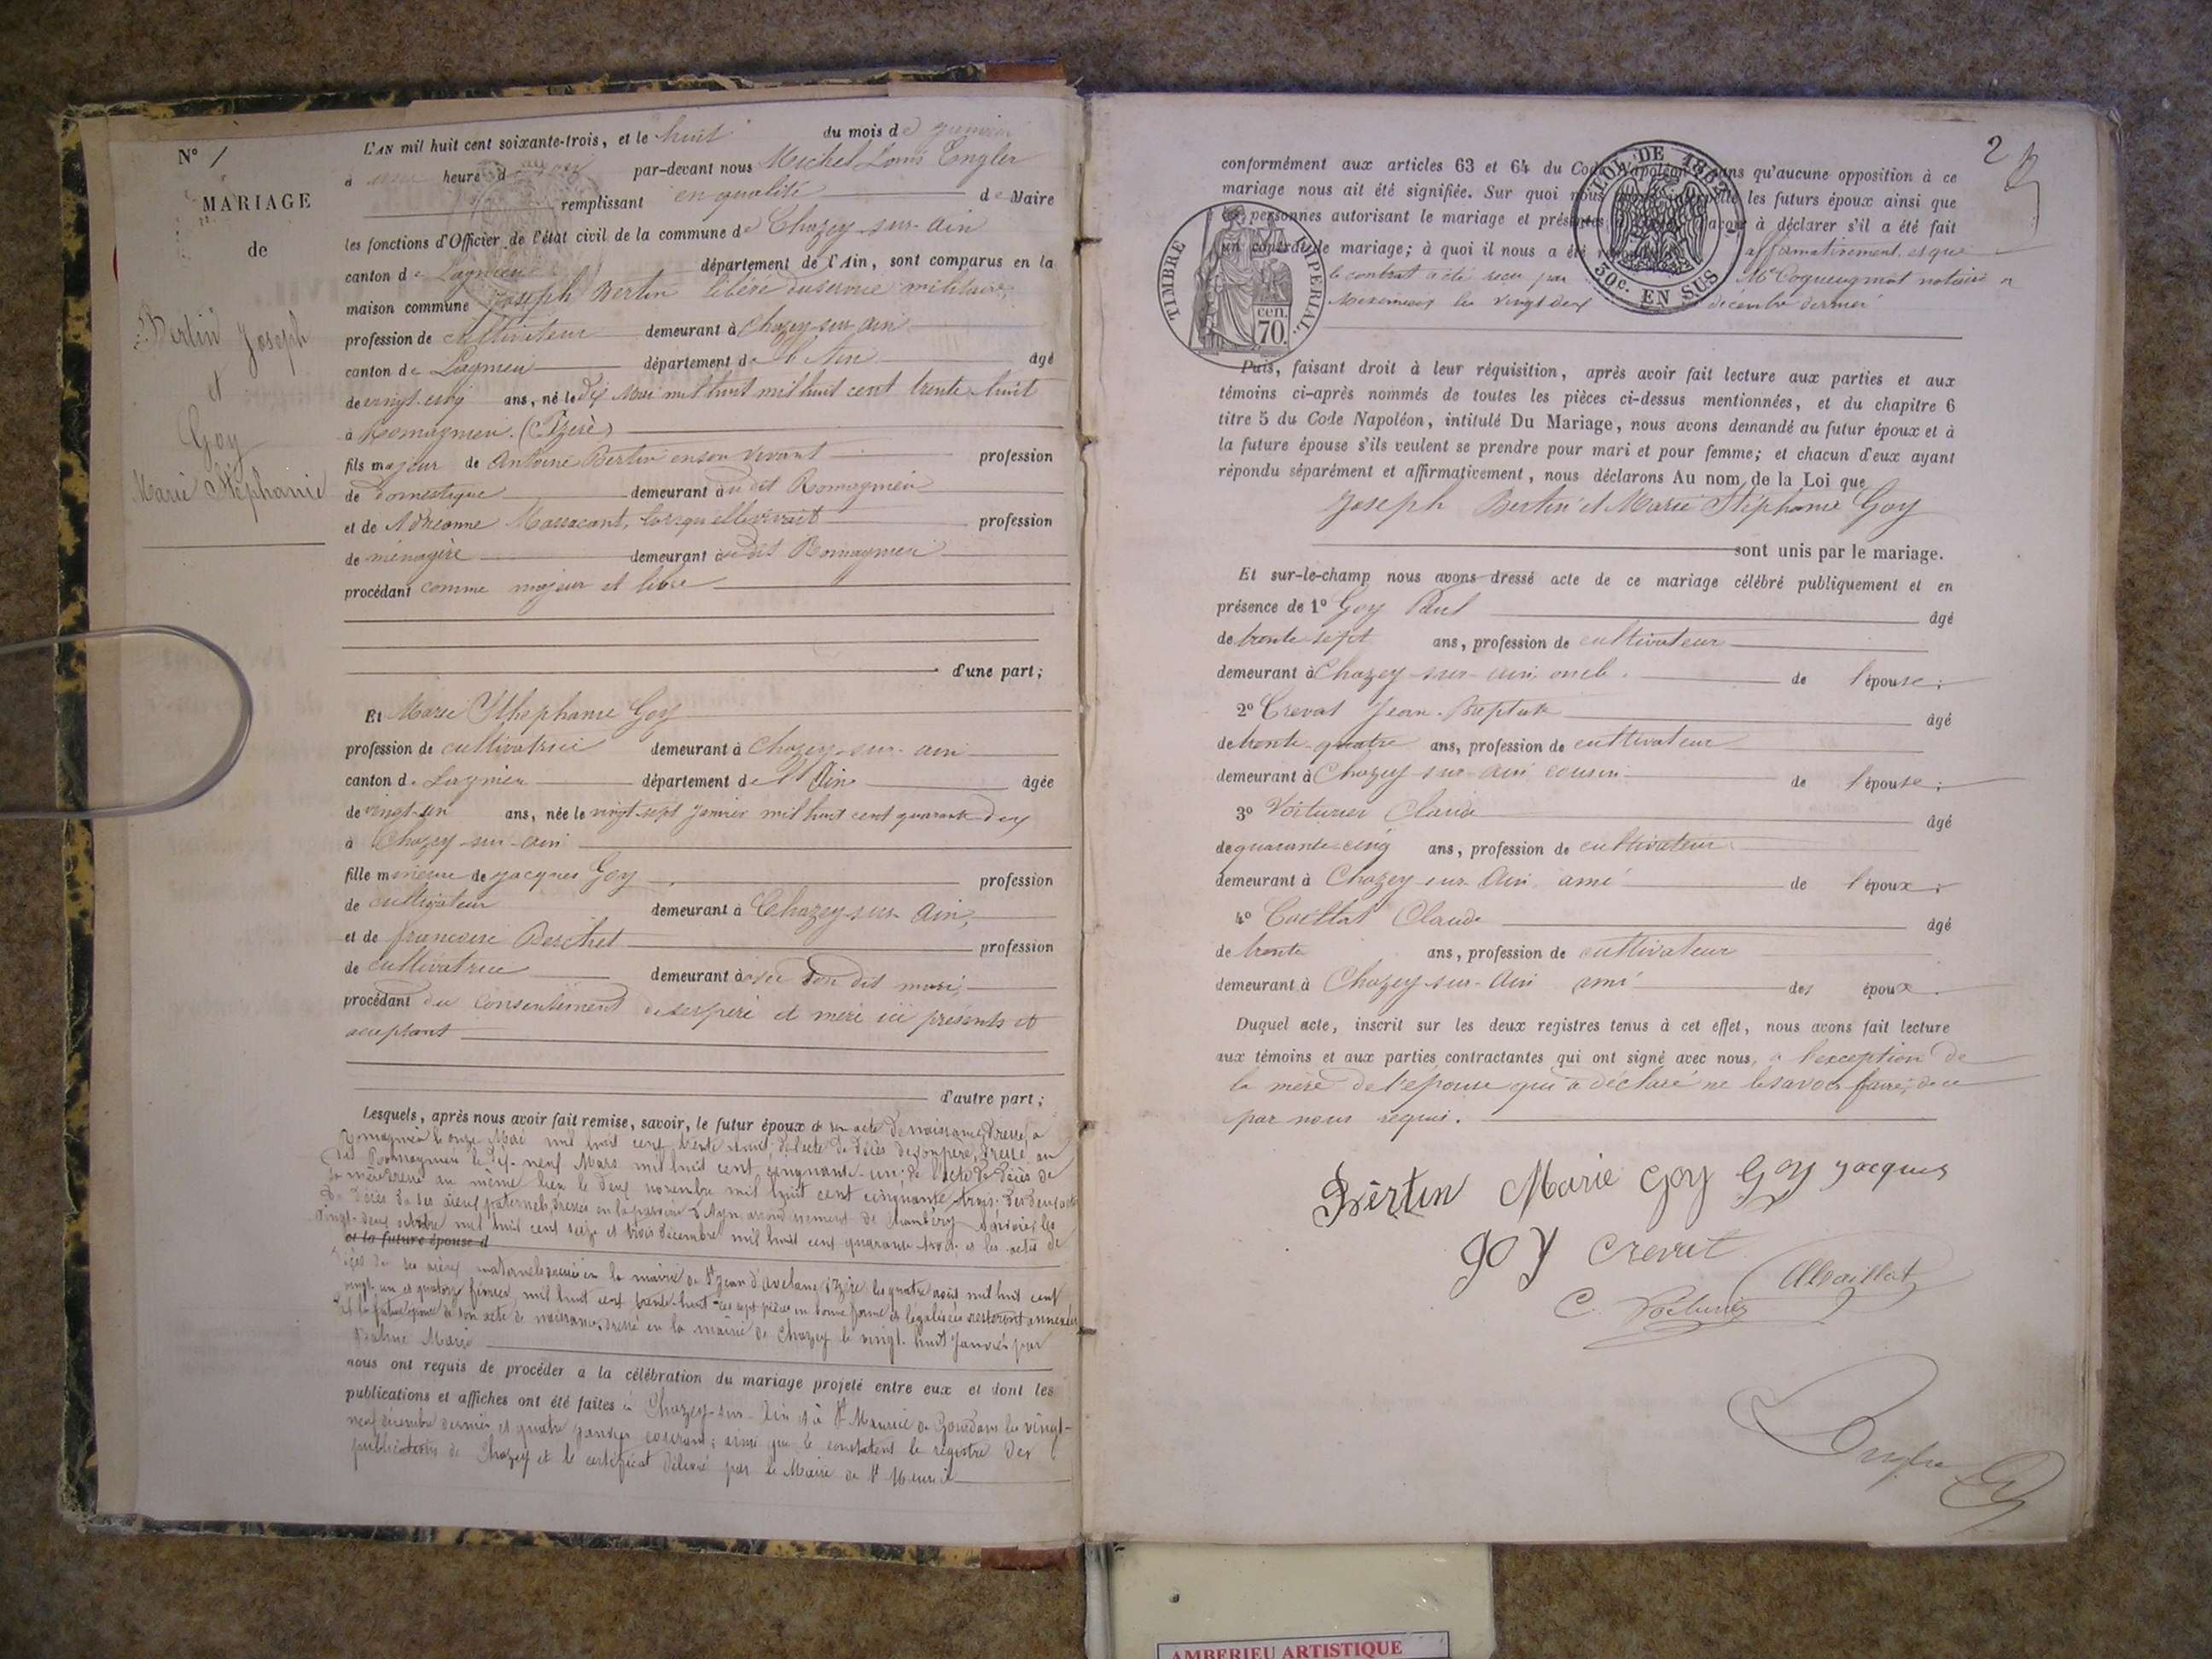 N° 1
MARIAGE
de
Bertin Joseph
et
Goy
Marie Stéphanie
L'AN mil huit cent soixante-trois, et le huit du mois de janvier
à une heure du soir par-devant nous Michel Louis Engler
remplissant en qualité de Maire
les fonctions d'Officier de l'état civil de la commune de Chazey-sur-ain
canton de Lagnieu département de l'Ain, sont comparus en la
maison commune Joseph Bertin libéré du service militaire,
profession de cultivateur demeurant à Chazey-sur-ain
canton de Lagnieu département de l'Ain âgé
de vingt-cinq ans, né le dix Mai mil huit mil huit cent trente huit
à Romagnieu (Izère)
fils majeur de Antoine Bertin en son vivant profession
de domestique demeurant au dit Romagnieu
et de Adrianne Massacant, lorsqu'elle vivait profession
de ménagère demeurant au dit Romagnieu
procédant comme majeur et libre
d'une part;
Et Marie Sthephanie Goy
profession de cultivatrice demeurant à Chazey-sur-ain
canton de Lagnieu département de l'Ain âgée
de vingt-un ans, née le vingt-sept Janvier mil huit cent quarante deux
à Chazey-sur-ain
fille mineure de jacques Goy profession
de cultivateur demeurant à Chazey-sur-Ain,
et de francoise Berchet profession
de cultivatrice demeurant avec son dit mari,
procédant du consentement de ses père et mère ici présents et
acceptant
d'autre part;
Lesquels, après nous avoir fait remise, savoir, le futur époux de son acte de naissance, dressé à
Romagnieu le onze Mai mil huit cent trente huit, de l'acte de décès de son père, dressé au
dit Romagnieu le dix-neuf Mars mil huit cent cinquante-un; de l'acte de décès de
sa mère dressé au même lieu le deux novembre mil huit cent cinquante trois; des deux actes
de décès de ses aïeux paternels, dressés en la paroisse d'Ayn, arrondissement de Chambéry Savoie, les
vingt-deux octobre mil huit cent seize et trois décembre mil huit cent quarante trois et les actes de
et la future épouse d
décès de ses aïeux maternels dressés en la mairie de St Jean d'Avelane, Izère les quatre août mil huit cent
vingt-un et quatorze février mil huit cent trente-huit ces sept pièces en bonne forme et légalisées resteront annexées
et la future épouse de son acte de naissance, dressé en la mairie de Chazey le vingt-huit Janvier par
Maire
nous ont requis de procéder à la célébration du mariage projeté entre eux et dont les
publications et affiches ont été faites à Chazey-sur-Ain et à St Maurice de Gourdans les vingt-
neuf décembre dernier et quatre janvier courant; ainsi que le constatent le registre des
publications de Chazey et le certificat délivré par le Maire de St Maurice
2
conformément aux articles 63 et 64 du Code Napoléon sans qu'aucune opposition à ce
mariage nous ait été signifiée. Sur quoi nous avons interpellé les futurs époux ainsi que
les personnes autorisant le mariage et présentes d'avoir à déclarer s'il a été fait
un contrat de mariage; à quoi il nous a été répondu affirmativement, et que
le contrat a été reçu par Me Coqueugniot notaire à
Meximieux le vingt deux décembre dernier
LOI DE 1862
50c. EN SUS
TIMBRE IMPERIAL.
cen.
70.
Puis, faisant droit à leur réquisition, après avoir fait lecture aux parties et aux
témoins ci-après nommés de toutes les pièces ci-dessus mentionnées, et du chapitre 6
titre 5 du Code Napoléon, intitulé Du Mariage, nous avons demandé au futur époux et à
la future épouse s'ils veulent se prendre pour mari et pour femme; et chacun d'eux ayant
répondu séparément et affirmativement, nous déclarons Au nom de la Loi que
Joseph Bertin et Marie Stéphanie Goy
sont unis par le mariage.
Et sur-le-champ nous avons dressé acte de ce mariage célébré publiquement et en
présence de 1° Goy Paul âgé
de trente sept ans, profession de cultivateur
demeurant à Chazey-sur-ain, oncle de l'épouse;
2° Crevat Jean-Baptiste âgé
de trente-quatre ans, profession de cultivateur
demeurant à Chazey-sur-ain cousin de l'épouse;
3° Voiturier Claude âgé
de quarante-cinq ans, profession de cultivateur
demeurant à Chazey-sur-Ain ami de l'époux;
4° Caillat Claude âgé
de trente ans, profession de cultivateur
demeurant à Chazey-sur-Ain ami des époux.
Duquel acte, inscrit sur les deux registres tenus à cet effet, nous avons fait lecture
aux témoins et aux parties contractantes qui ont signé avec nous, à l'exception de
la mère de l'épouse qui a déclaré ne le savoir faire, de ce
par nous requis.
Bertin Marie Goy Goy jacques
goy crevat
C. Voiturier
Engler
AMBERIEU ARTISTIQUE